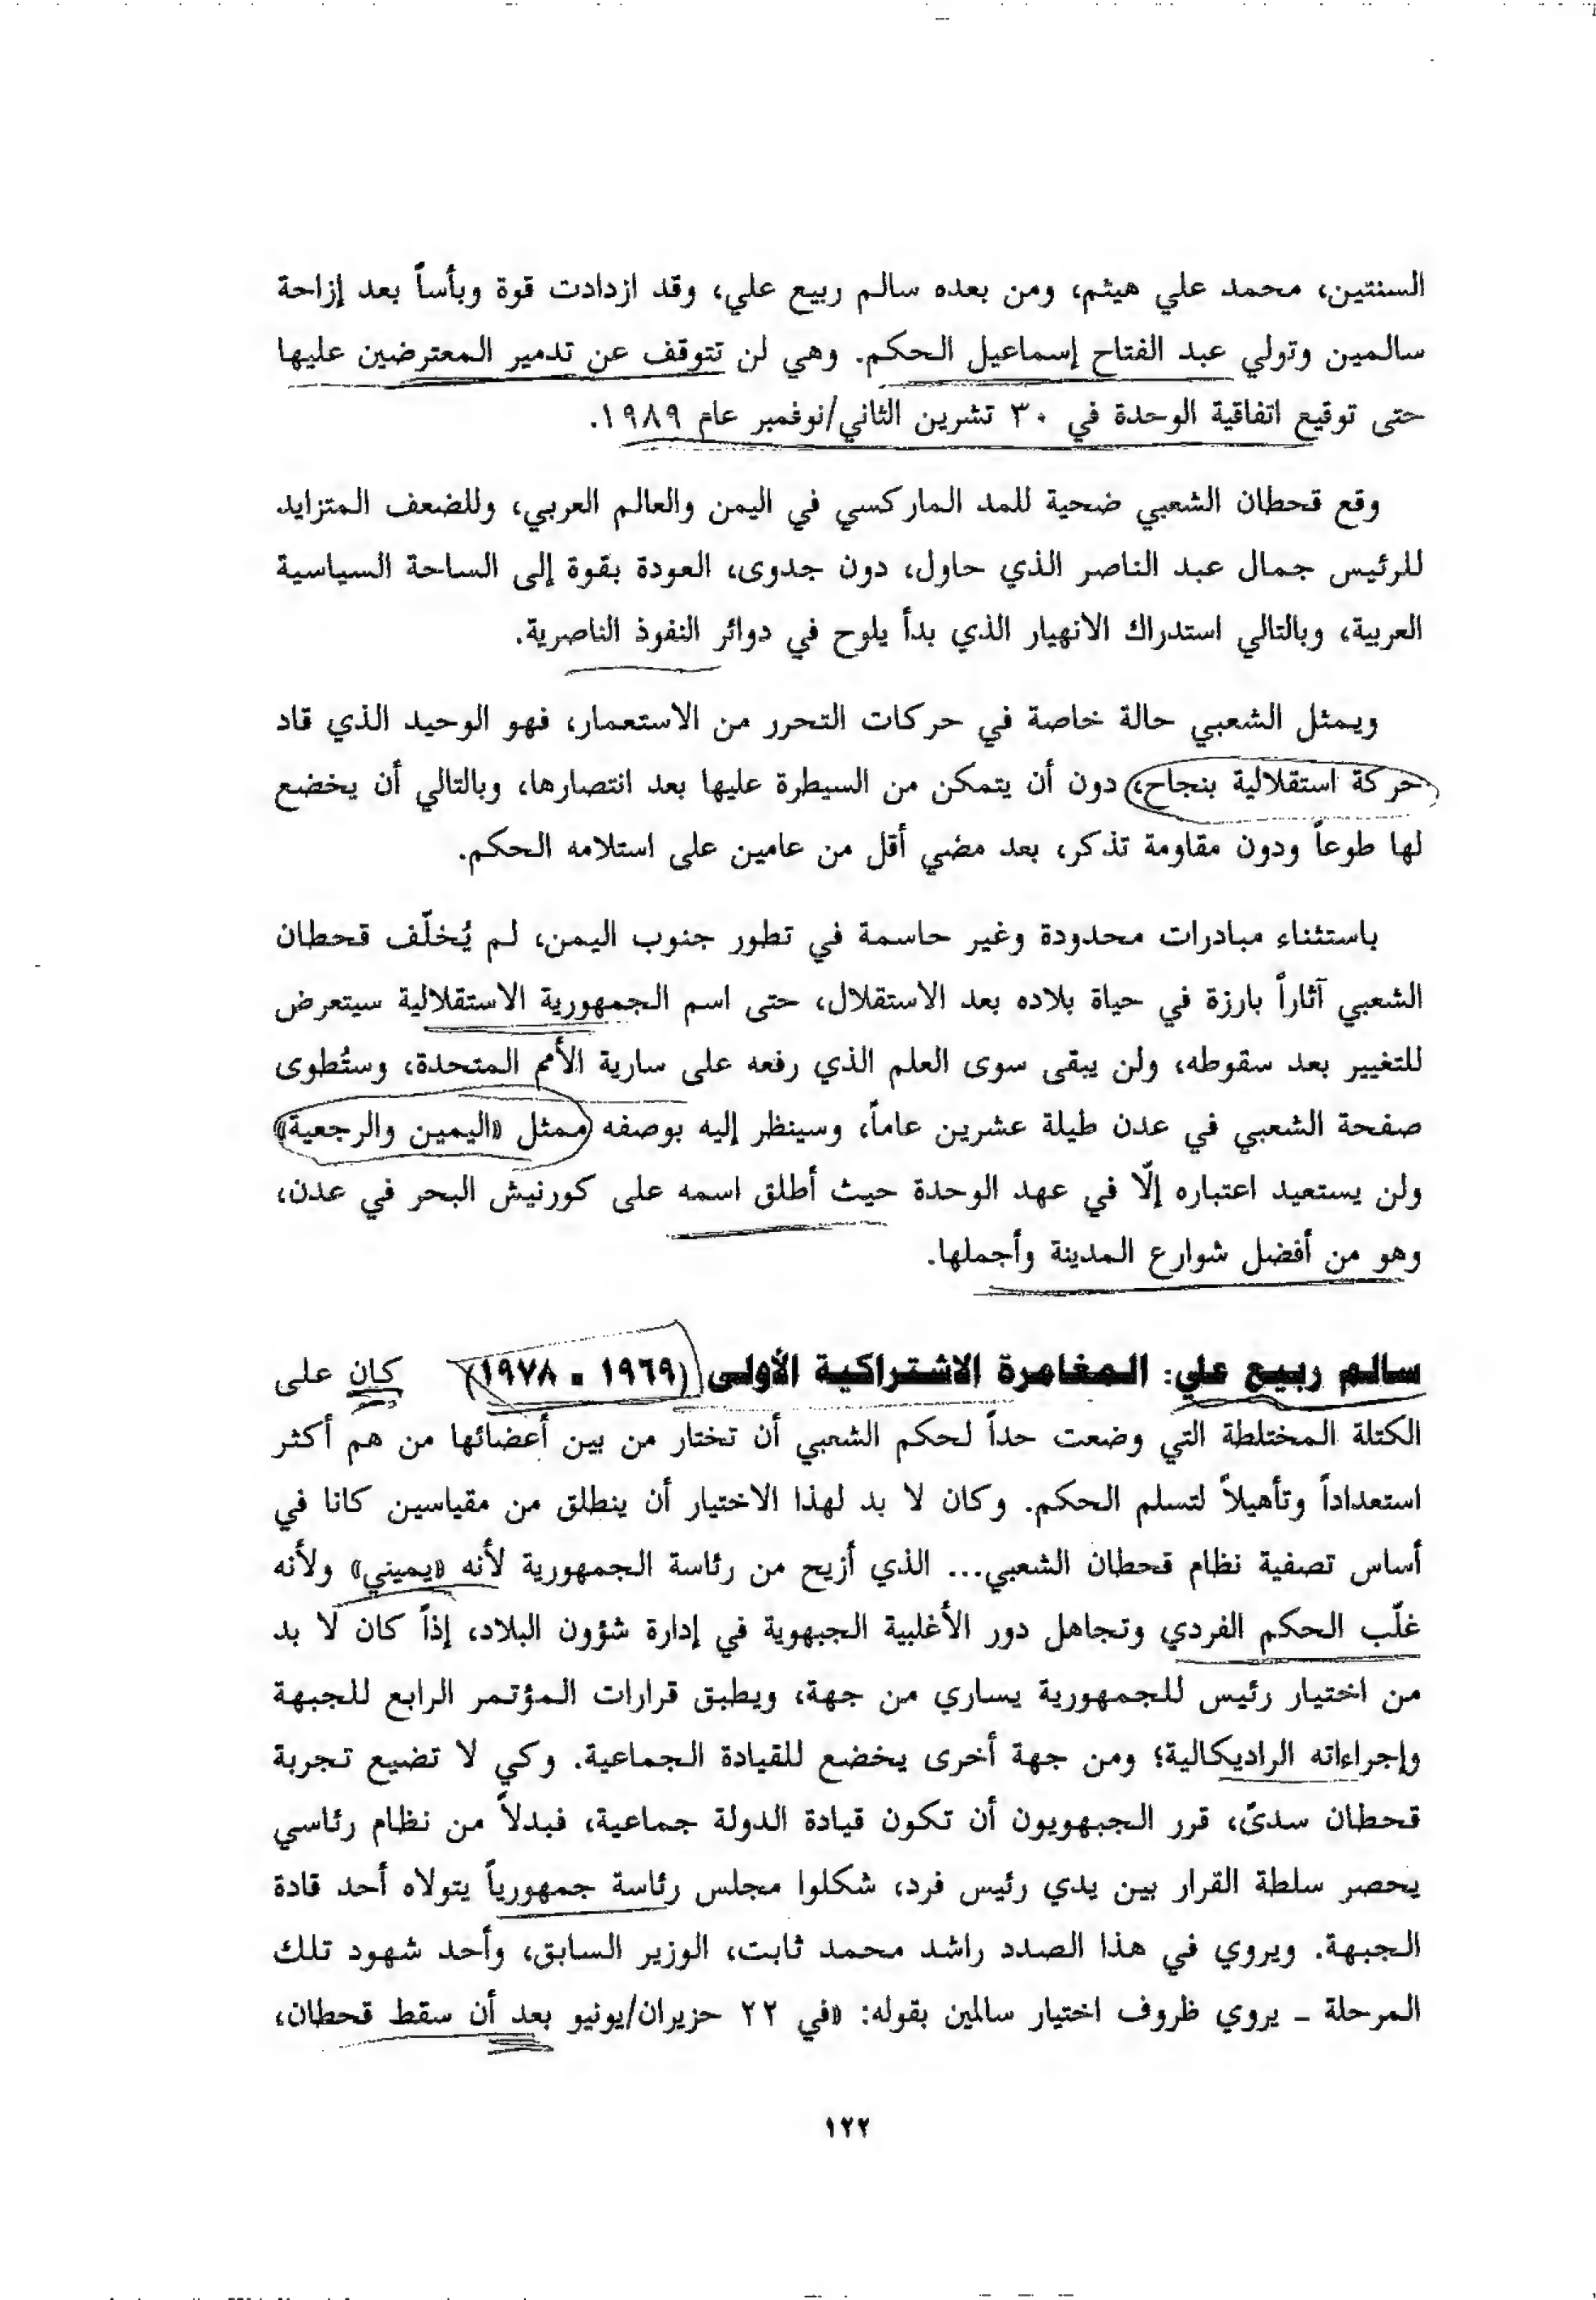 السنتين، محمد علي هيثم، ومن بعده سالم ربيع علي، وقد ازدادت قوة وبأساً بعد إزاحة
سالمين وتولي عبد الفتاح إسماعيل الحكم. وهي لن تتوقف عن تدمير المعترضين عليها
حتى توقيع اتفاقية الوحدة في ٣٠ تشرين الثاني/نوفمبر عام ١٩٨٩.
وقع قحطان الشعبي ضحية للمد الماركسي في اليمن والعالم العربي، وللضعف المتزايد
للرئيس جمال عبد الناصر الذي حاول، دون جدوى، العودة بقوة إلى الساحة السياسية
العربية، وبالتالي استدراك الانهيار الذي بدأ يلوح في دوائر النفوذ الناصرية.
ويمثل الشعبي حالة خاصة في حركات التحرر من الاستعمار، فهو الوحيد الذي قاد
حركة استقلالية بنجاح، دون أن يتمكن من السيطرة عليها بعد انتصارها، وبالتالي أن يخضع
لها طوعاً ودون مقاومة تذكر، بعد مضي أقل من عامين على استلامه الحكم.
باستثناء مبادرات محدودة وغير حاسمة في تطور جنوب اليمن، لم يُخلّف قحطان
الشعبي آثاراً بارزة في حياة بلاده بعد الاستقلال، حتى اسم الجمهورية الاستقلالية سيتعرض
للتغيير بعد سقوطه، ولن يبقى سوى العلم الذي رفعه على سارية الأمم المتحدة، وستُطوى
صفحة الشعبي في عدن طيلة عشرين عاماً، وسينظر إليه بوصفه ممثل «اليمين والرجعية»
ولن يستعيد اعتباره إلّا في عهد الوحدة حيث أطلق اسمه على كورنيش البحر في عدن،
وهو من أفضل شوارع المدينة وأجملها.
سالم ربيع علي: المغامرة الاشتراكية الأولى (١٩٦٩ - ١٩٧٨) كان على
الكتلة المختلطة التي وضعت حداً لحكم الشعبي أن تختار من بين أعضائها من هم أكثر
استعداداً وتأهيلاً لتسلم الحكم. وكان لا بد لهذا الاختيار أن ينطلق من مقياسين كانا في
أساس تصفية نظام قحطان الشعبي... الذي أزيح من رئاسة الجمهورية لأنه «يميني» ولأنه
غلّب الحكم الفردي وتجاهل دور الأغلبية الجبهوية في إدارة شؤون البلاد، إذاً كان لا بد
من اختيار رئيس للجمهورية يساري من جهة، ويطبق قرارات المؤتمر الرابع للجبهة
وإجراءاته الراديكالية؛ ومن جهة أخرى يخضع للقيادة الجماعية. وكي لا تضيع تجربة
قحطان سدىً، قرر الجبهويون أن تكون قيادة الدولة جماعية، فبدلاً من نظام رئاسي
يحصر سلطة القرار بين يدي رئيس فرد، شكلوا مجلس رئاسة جمهورياً يتولاه أحد قادة
الجبهة. ويروي في هذا الصدد راشد محمد ثابت، الوزير السابق، وأحد شهود تلك
المرحلة - يروي ظروف اختيار سالمين بقوله: «في ٢٢ حزيران/يونيو بعد أن سقط قحطان،
١٢٢